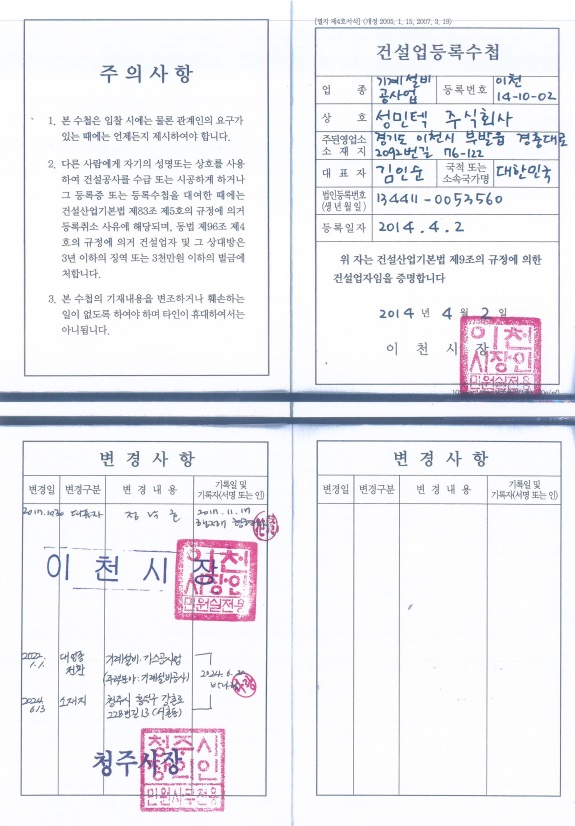 주 의 사 항
1. 본 수첩은 입찰 시에는 물론 관계인의 요구가
있는 때에는 언제든지 제시하여야 합니다.
2. 다른 사람에게 자기의 성명또는 상호를 사용
하여 건설공사를 수급 또는 시공하게 하거나
그 등록증 또는 등록수첩을 대여한 때에는
건설산업기본법 제83조 제5호의 규정에 의거
등록취소 사유에 해당되며, 동법 제96조 제4
호의 규정에 의거 건설업자 및 그 상대방은
3년 이하의 징역 또는 3천만원 이하의 벌금에
처합니다.
3. 본 수첩의 기재내용을 변조하거나 훼손하는
일이 없도록 하여야 하며 타인이 휴대하여서는
아니됩니다.
[별지 제4호서식] <개정 2005. 1. 15, 2007. 3. 19>
건설업등록수첩
업 종 기계설비 공사업 등록번호 이천 14-10-02
상 호 성민텍 주식회사
주된영업소 소 재 지 경기도 이천시 부발읍 경충대로 2092번길 76-122
대 표 자 김인순 국적 또는 소속국가명 대한민국
법인등록번호 (생 년 월 일) 134411-0053560
등록일자 2014. 4. 2
위 자는 건설산업기본법 제9조의 규정에 의한
건설업자임을 증명합니다
2014 년 4 월 2 일
이 천 시 장
이천
시장인
민원실전용
변 경 사 항
변경일 변경구분 변 경 내 용 기록일 및 기록자(서명 또는 인)
대표자 2017. 11. 17
이 천 시 장
이천
시장인
민원실전용
2022. 1. 1. 대업종 전환 기계설비·가스공사업
(주력분야: 기계설비공사)
2024. 6.
2024. 6.13 소재지 청주시 흥덕구
228번길 13
청주시장
청주시
장의인
민원사무전용
변 경 사 항
변경일 변경구분 변 경 내 용 기록일 및 기록자(서명 또는 인)